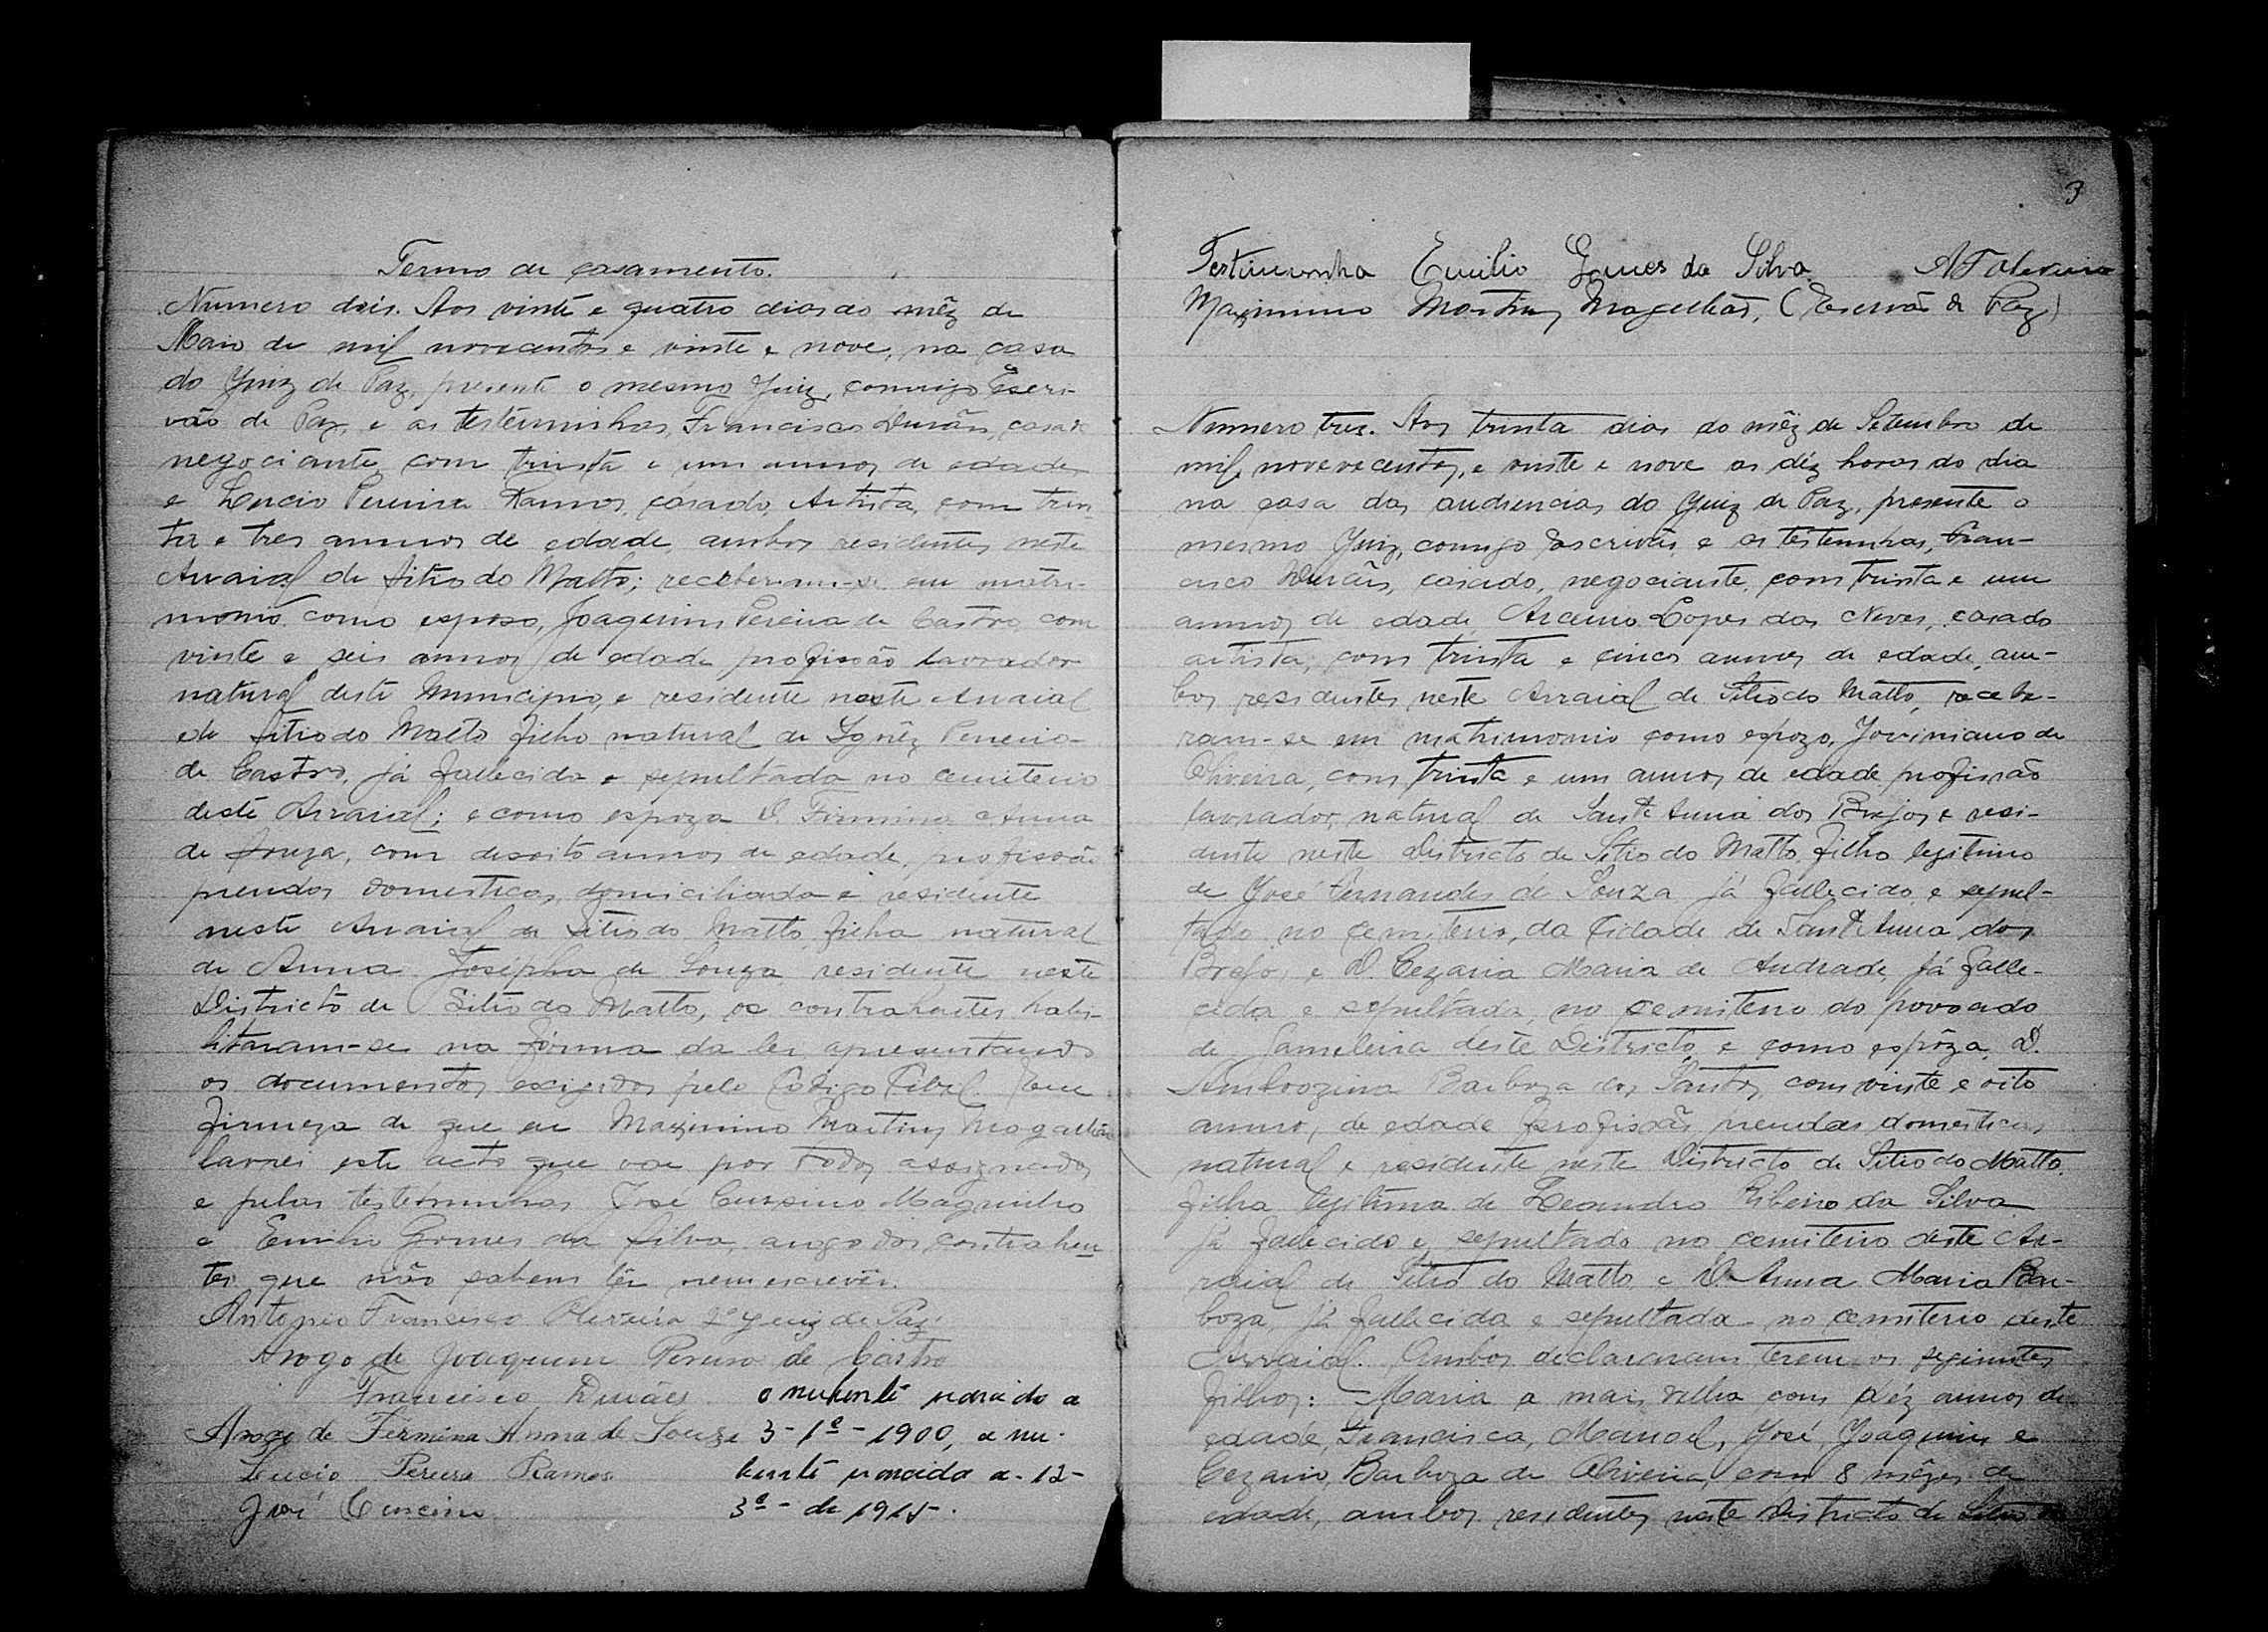 Termo de casamento.
Numero dois. Aos vinte e quatro dias do mêz de
Maio de mil novecentos e vinte e nove, na casa
do Juiz de Paz, presente o mesmo Juiz, comigo Escri-
vão de Paz, e as testeminhas, Francisco Durães, casado
negociante, com trinta e um annos de edade
e Lucio Pereira Ramos, casado, Artista, com trin-
ta e tres annos de edade ambos residentes neste
Arraial de Sitio do Matto; receberam-se em matri-
monio como esposo, Joaquim Pereira de Castro, com
vinte e seis annos de edade profissão lavrador
natural deste Municipio, e residente neste Arraial
de Sitio do Matto filho natural de Ignêz Pereira
de Castro, já fallecida e sepultada no cemiterio
deste Arraial; e como espoza D. Firmina Anna
de Souza, com desoito annos de edade, profissão
prendas domesticas, domiciliada e residente
neste Arraial de Sitio do Matto, filha natural
de Anna Josépha de Souza residente neste
Districto de Sitio do Matto, os contrahentes habi-
litaram-se na fórma da lei, apresentando
os documentos exigidos pelo Codigo Civil. Em
firmeza de que eu Maximino Martins Magalhães
lavrei este acto que vae por todos assignados
e pelas testeminhas José Cursino Magrinho
e Emilio Gomes da Silva, arogo dos contrahen
tes que não sabem lêr nem escrevêr.
Antonio Francisco Oliveira 2º Juiz de Paz.
Arogo de Joaquim Pereira de Castro
Francisco Durães o nubente nascido a
Arogo de Firmina Anna de Souza 3-1º-1900, a nu-
Lucio Pereira Ramos bente nascida a-12-
José Cursino 3º- de 1911-.
3
Testimunha Emilio Gomes da Silva. A F Oliveira
Maximino Martins Magalhães, (Escrivão de Paz)
Numero tres. Aos trinta dias do mêz de Setembro de
mil novevecentos, e vinte e nove as déz horas do dia
na casa das audiencias do Juiz de Paz, presente o
mesmo Juiz, comigo Escrivão e as testemnhas, Fran-
cisco Durães, casado, negociante, com trinta e um
annos de edade, Arcenio Lopes das Neves, casado
artista, com trinta e cinco annos de edade, am-
bos residentes neste Arraial de Sitio do Matto, recebe-
ram-se em matrimonio como espozo, Joviniano de
Oliveira, com trinta e um annos de edade profissão
lavrador, natural de Sant'Anna dos Brejos e resi-
dente neste districto de Sitio do Matto filho legitimo
de José Fernandes de Souza já fallecido e sepul-
tado no cemiterio, da Cidade de Sant'Anna dos
Brejos, e D. Cezaria Maria de Andrade, já falle-
cida e sepultada, no cemiterio do povoado
de Gamelleira deste Districto, e como espôza, D.
Ambrozina Barboza dos Santos, com vinte e oito
annos, de edade profissão prendas domesticas
natural e residente neste Districto de Sitio do Matto.
filha legitima de Leandro Ribeiro da Silva
já fallecido e sepultado no cemiterio deste Ar-
raial de Sitio do Matto e D. Anna Maria Bar-
boza, já fallecida e sepultada no cemiterio deste
Arraial. Ambos declararam terem os seguintes
filhos: Maria a mais velha com déz annos de
edade, Francisca, Manoel, José Joaquim e
Cezario, Barboza de Oliveira, com 8 mêzes de
edade, ambos residentes neste districto de Sitio do